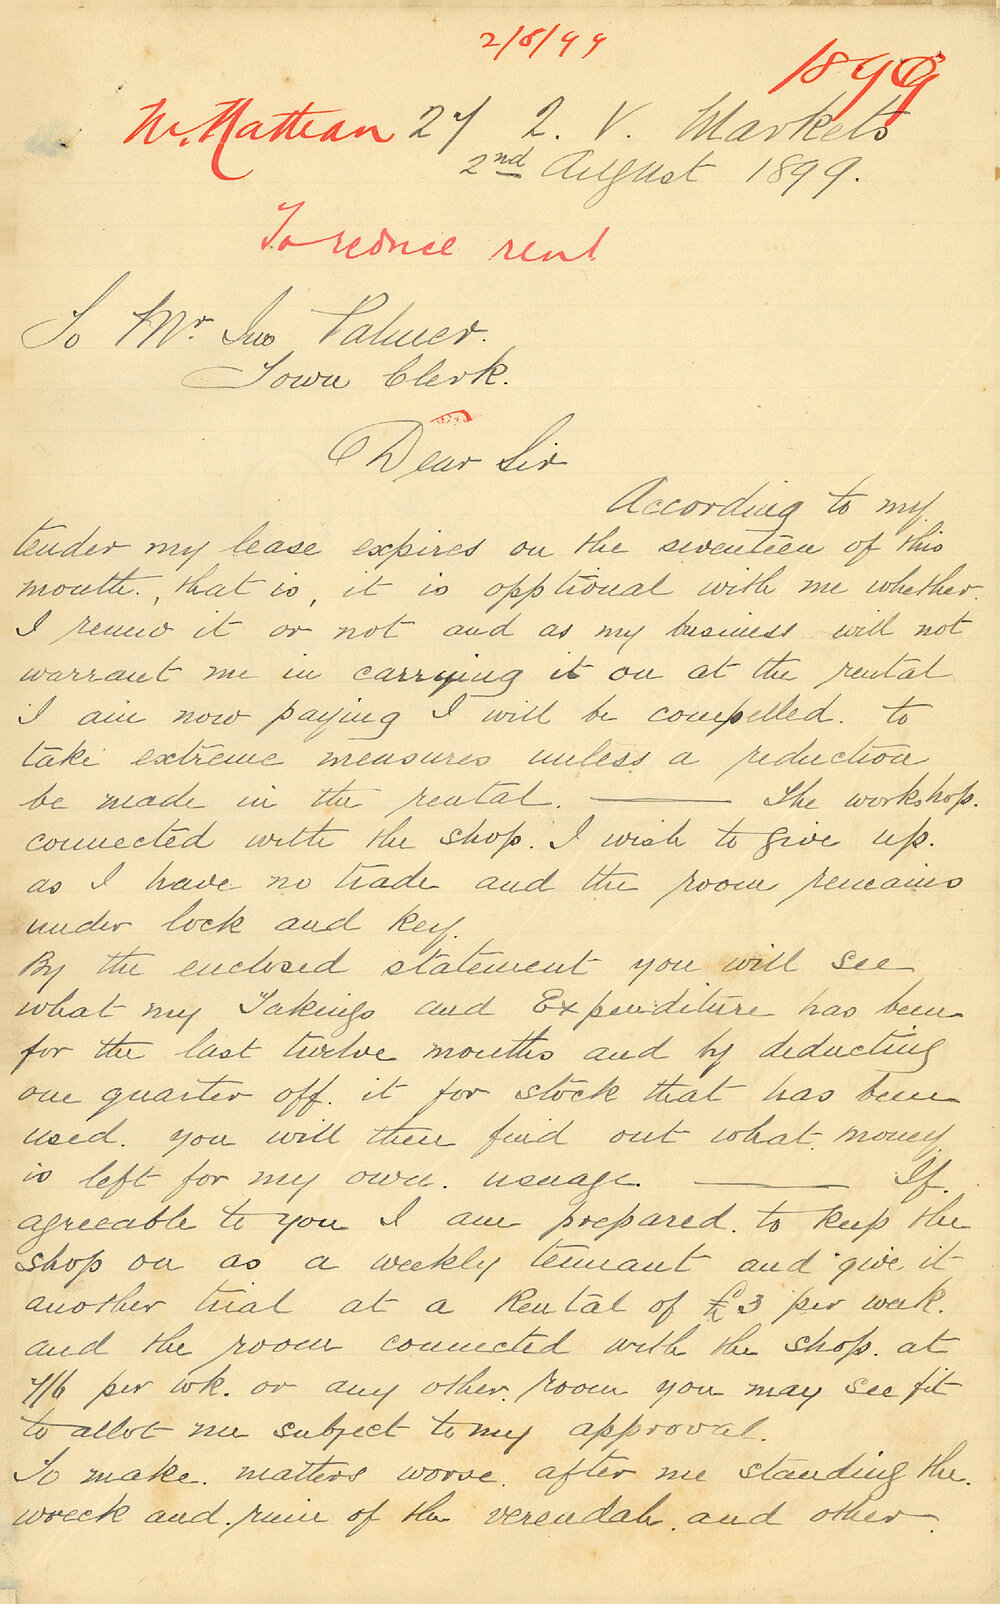 2/8/99
1899
McMattean 27 Q. V. Markets
2nd August 1899.
To reduce rent
To Mr. Jno Palmer.
Town Clerk.
Dear Sir
According to my
tender my lease expires on the seventeen of this
month., that is, it is opptional with me whether
I renew it or not and as my business will not
warrant me in carrying it on at the rental
I am now paying I will be compelled. to
take extreme measures unless a reduction
be made in the rental. ——— The workshop.
connected with the shop. I wish to give up.
as I have no trade and the room remains
under lock and key.
By the enclosed statement you will see
what my Takings and Expenditure has been
for the last twelve months and by deducting
one quarter off. it for stock that has been
used. you will then find out what. money
is left for my own. usuage. ——— If.
agreeable to you I am prepared. to keep the
shop on as a weekly tennant and give it
another trial at a Rental of £3 per week.
and the room connected with the shop. at
7/6 per wk. or any other. room you may see fit
to allot me subject to my approval.
To make. matters worse. after me standing the.
wreck and. ruin of the verendah. and other